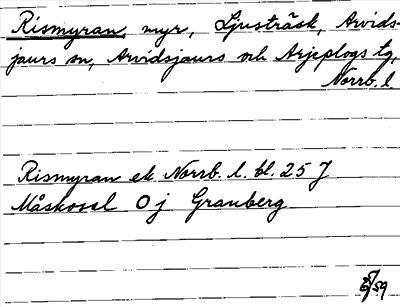 Rismyran, myr, Ljusträsk, Arvids-
jaurs sn, Arvidsjaurs och Arjeplogs tg,
Norrb. l.
Rismyran ek Norrb. l. bl. 25 J
Måskosel 0 j Granberg
59